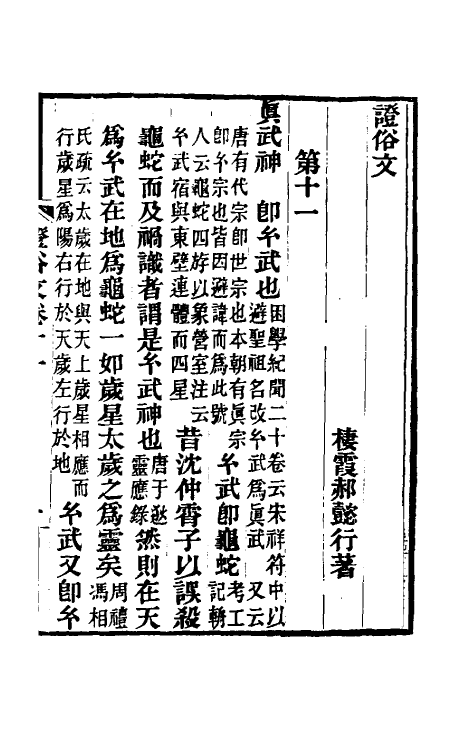 證俗文
棲霞郝懿行著
第十一
眞武神 卽玄武也
困學紀聞二十卷云宋祥符中以
避聖祖名改玄武爲眞武 又云
唐有代宗卽世宗也本朝有眞宗
卽玄宗也皆因避諱而爲此號
玄武卽龜蛇
考工
記輈
人云龜蛇四斿以象營室注云
玄武宿與東壁連體而四星
昔沈仲霄子以誤殺
龜蛇而及禍識者謂是玄武神也
唐于逖
靈應錄
然則在天
爲玄武在地爲龜蛇一如歲星太歲之爲靈矣
周禮
馮相
氏疏云太歲在地與天上歲星相應而
行歲星爲陽右行於天歲左行於地
玄武又卽玄
證俗文卷十一
一